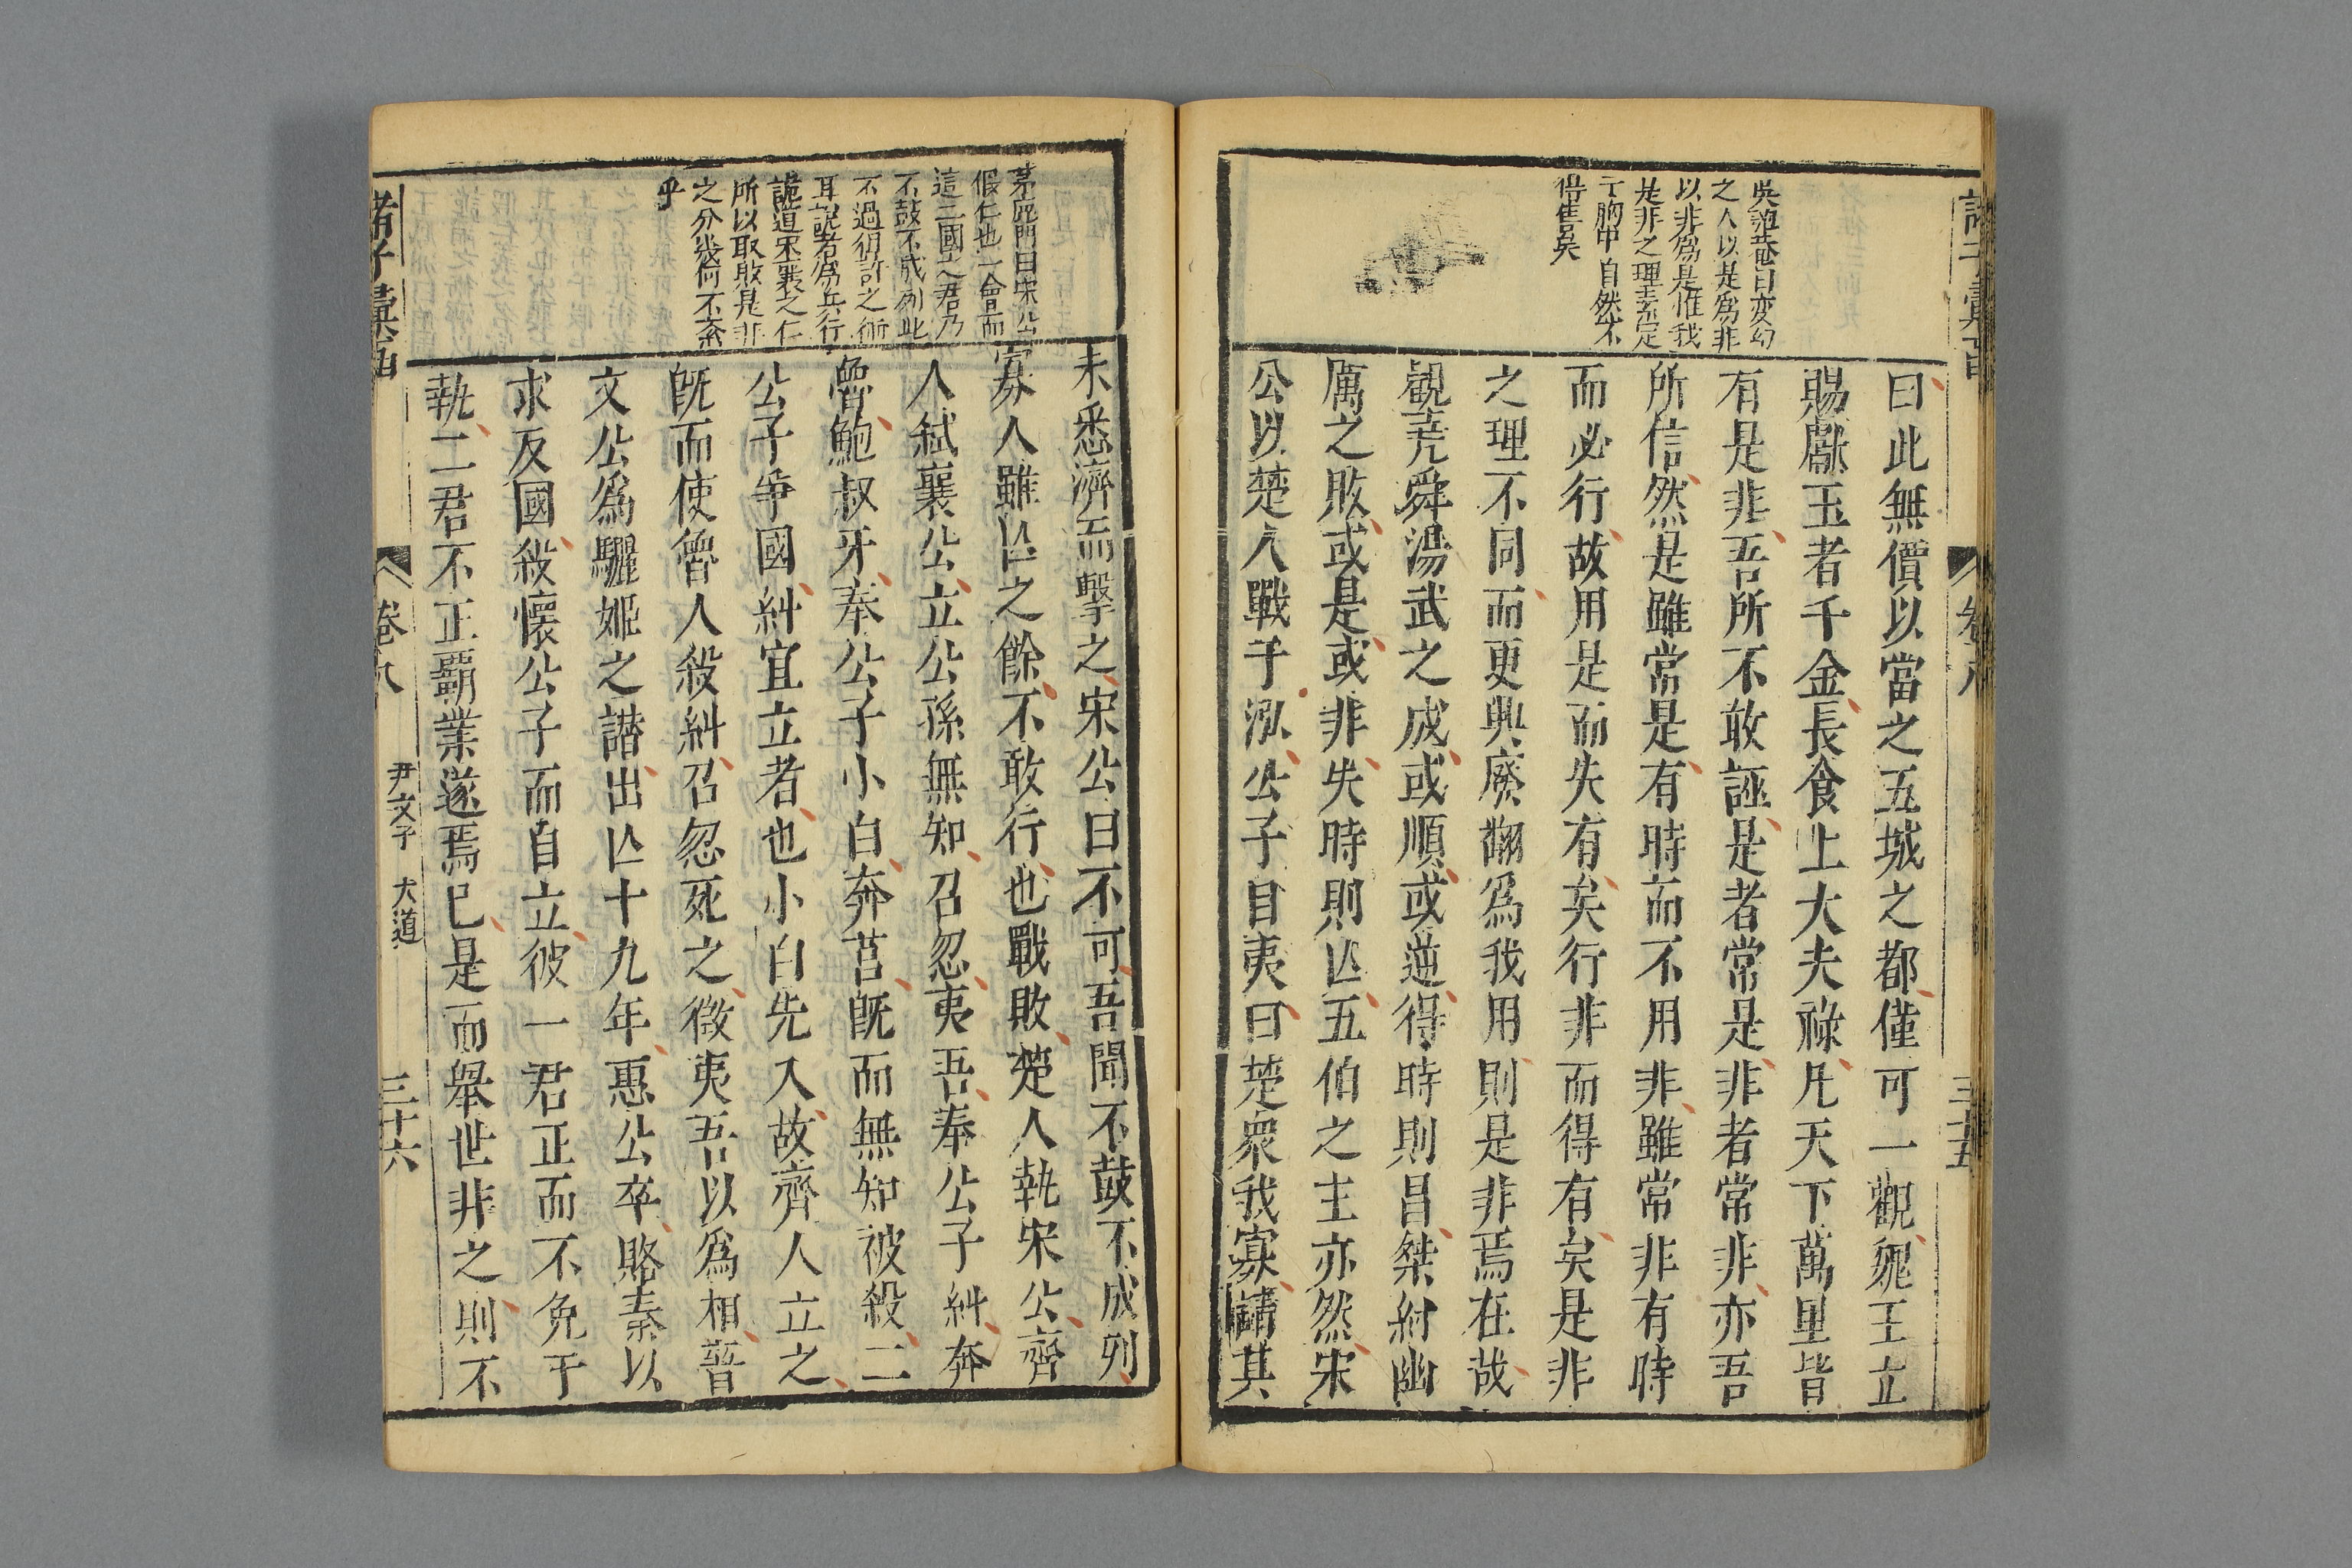 吳匏菴曰変幻
之人以是爲非
以非爲是惟我
是非之理素定
于胸中自然不
得售矣
曰此無價以當之五城之都僅可一觀魏王立
賜獻玉者千金長食上大夫祿凡天下萬里皆
有是非吾所不敢誣是者常是非者常非亦吾
所信然是雖常是有時而不用非雖常非有時
而必行故用是而失有矣行非而得有矣是非
之理不同而更興廢翻爲我用則是非焉在哉
觀堯舜湯武之成或順或逆得時則昌桀紂幽
厲之敗或是或非失時則亾五伯之主亦然宋
公以楚人戰于泓公子目夷曰楚衆我寡請其
茅鹿門曰宋公
假仁也一會而
這二國之君乃
不鼓不成列此
不過狙詐之術
耳說者爲兵行
詭道宋襄之仁
所以取敗是非
之分幾何不紊
乎
未悉濟而擊之宋公曰不可吾聞不鼓不成列
寡人雖亾之餘不敢行也戰敗楚人執宋公齊
人弑襄公立公孫無知召忽夷吾奉公子糾奔
魯鮑叔牙奉公子小白奔莒旣而無知被殺二
公子爭國糾宜立者也小白先入故齊人立之
旣而使魯人殺糾召忽死之徵夷吾以爲相晉
文公爲驪姬之譖出亾十九年惠公卒賂秦以
求反國殺懷公子而自立彼一君正而不免于
執二君不正霸業遂焉已是而舉世非之則不
諸子彙函
卷八
尹文子 大道
三十六